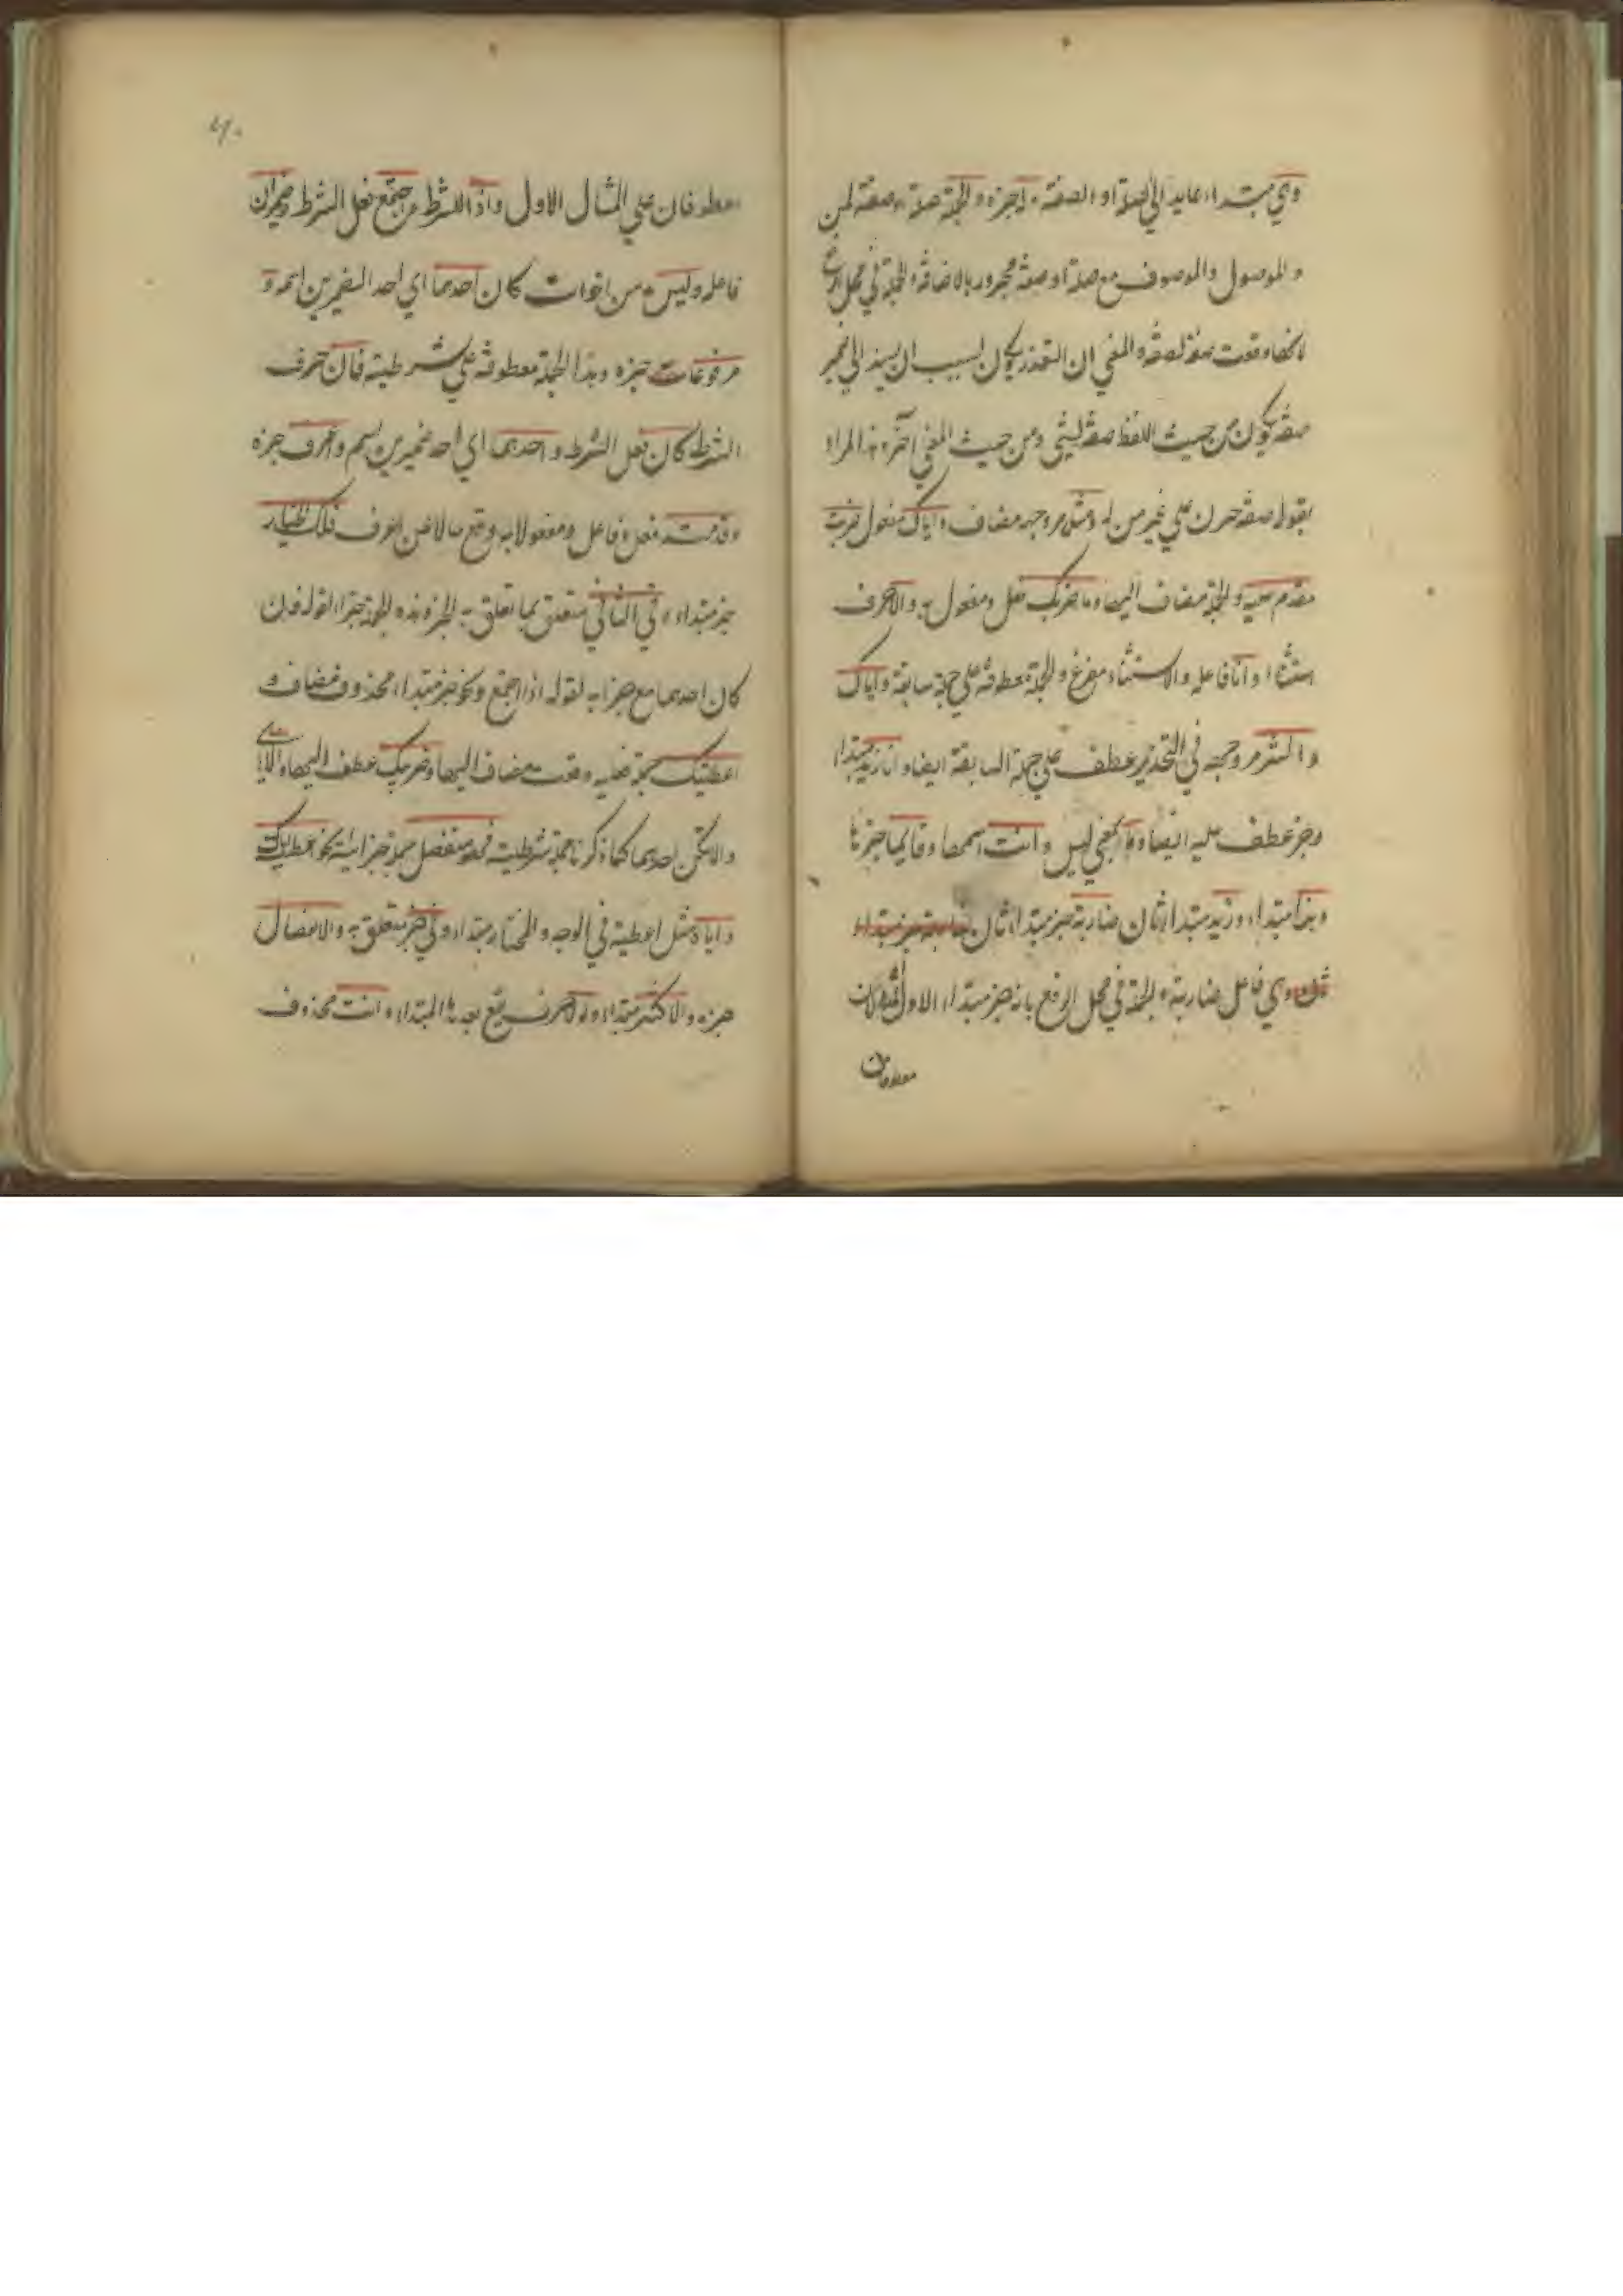 وهي مبتداء عايد الي الصلة او الصفة له خبره والجملة صلة او صفة لمن
والموصول والموصوف مع صلة او صفة مجرور بالاضافة والجملة في محل الرفع
وقعت صفة لصفة والمعني ان التعذر يكون لسبب ان يسند الي ضمير
صفة يكون من حيث اللفظ صفة لشيئ ومن حيث المعني آخر هذا المراد
بقوله صفة جرت علي غير من له ومثل مر وجهه مضاف واياك مفعول ضربت
مقدم عليه والجملة مضاف اليها وما ضربك فعل ومفعول به والا حرف
استثناء وانا فاعله والاستثناء مفرغ والجملة معطوفة علي جملة سابقة واياك
والشر مر وجهه في التحذير عطف علي جملة السابقة ايضا وانا زيد مبتدا
وخبر عطف عليه ايضا وما بمعني ليس وانت اسمها وقايما خبرها
وهند مبتداء وزيد مبتدا ثان ضاربته خبر مبتدا ثان
وهي فاعل ضاربته والجملة في محل الرفع بانه خبر مبتداء الاول
معطوفان
معطوفان علي المثال الاول واذا للشرط اجتمع فعل الشرط وضميران
فاعله وليس من اخوات كان احدهما اي احد الضميرين اسمه و
مرفوعا خبره وهذا الجملة معطوفة علي شرطية فان حرف
الشرط كان فعل الشرط واحدهما اي احد ضميرين اسم واعرف خبره
وقدمته فعل وفاعل ومفعولا به وقع حالا عن اعرف فلك الخيار
خبر مبتداء وفي الثاني متعلق بما تعلق به الخبر وهذه الجملة جزاء لقوله فان
كان احدهما مع جزايه لقوله اذا اجتمع ونحو خبر مبتداء محذوف مضاف و
اعطيتك جملة فعلية وقعت مضاف اليها وضربيك عطف اليها
والا يكن احدهما كما ذكرنا جملة شرطية فهو منفصل جملة جزائية نحو اعطيتك
واياه مثل اعطيته في الوجه والمختار مبتداء وفي خبر متعلق به والانفصال
خبره والاكثر مبتداء ولولا حرف يقع بعدها المبتداء وانت محذوف